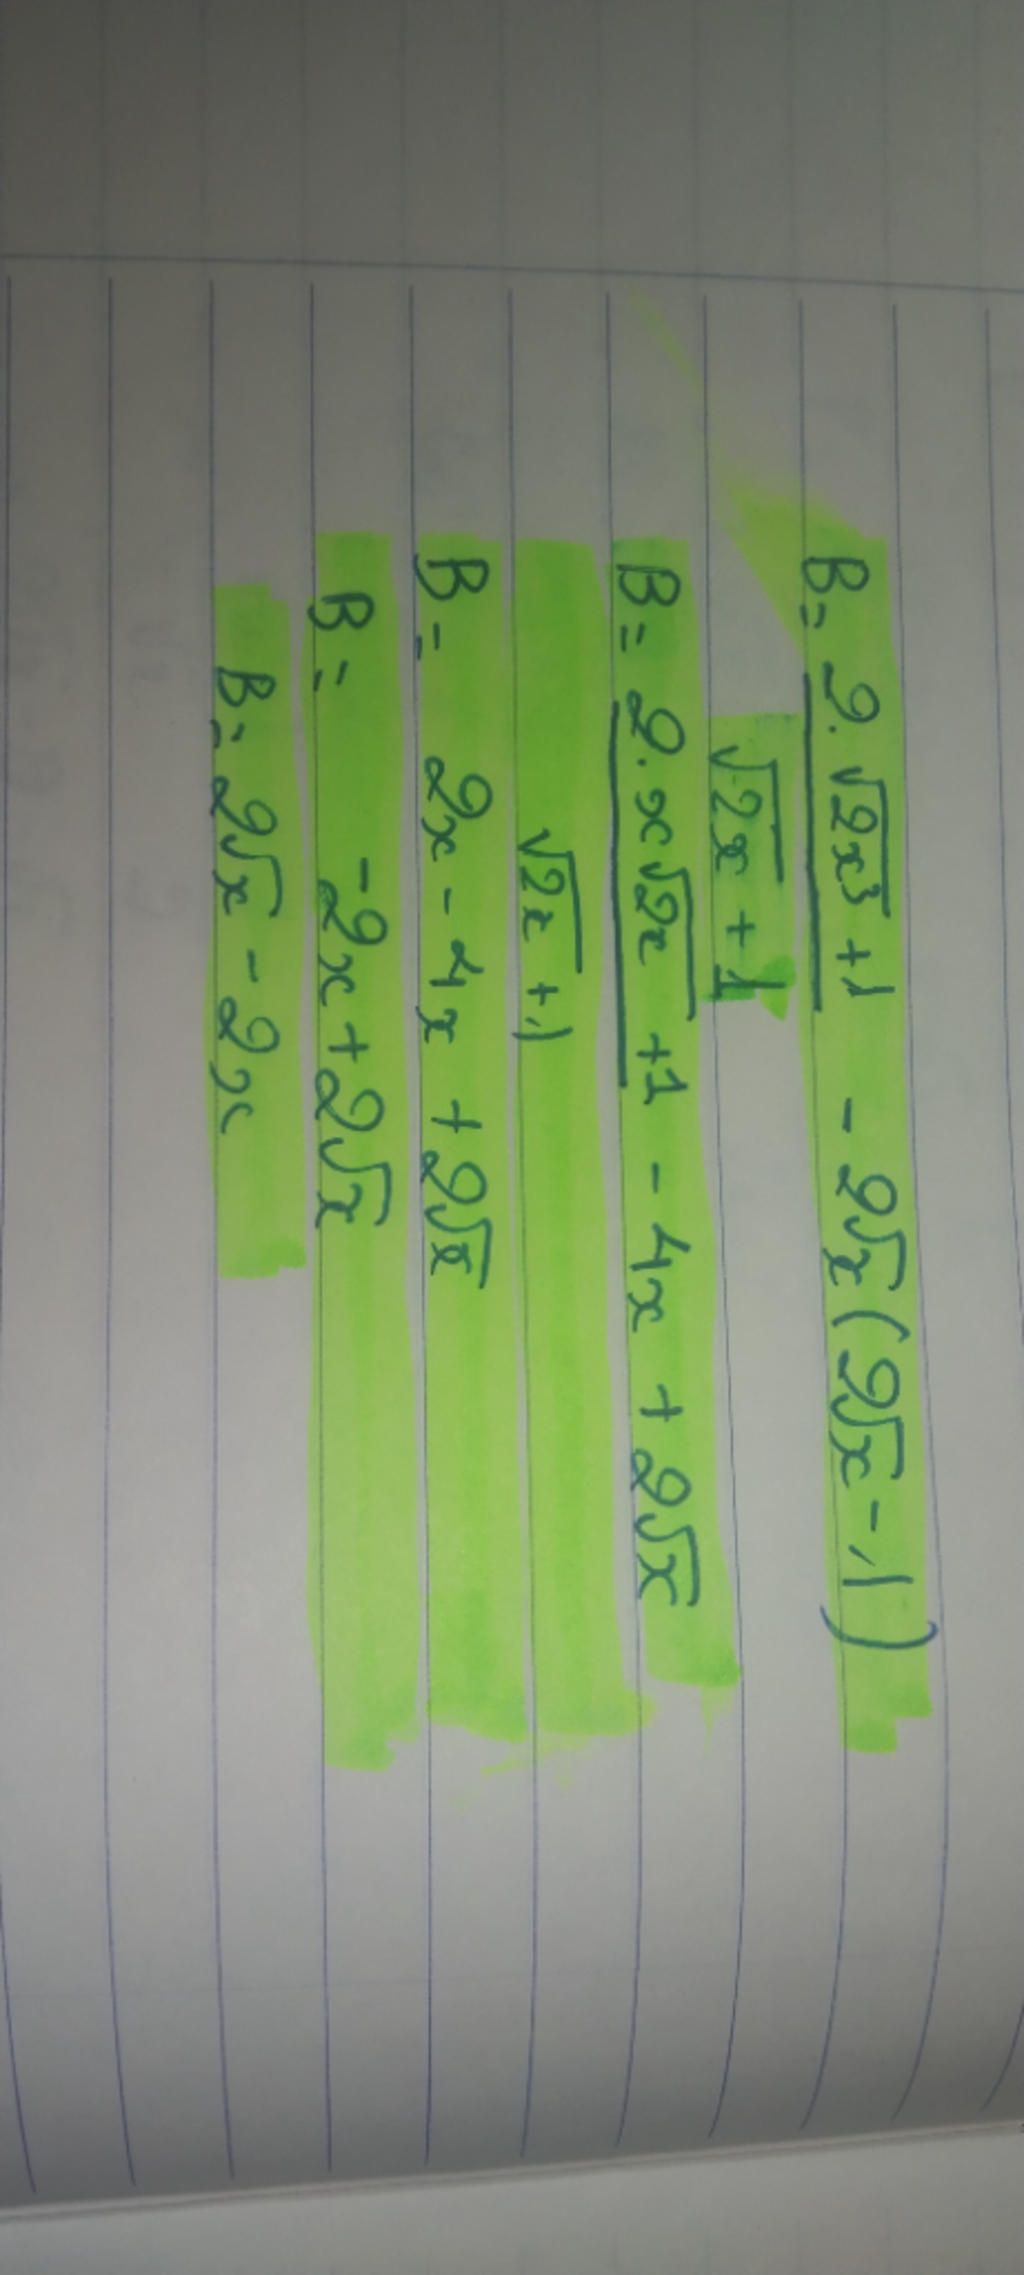 B= 2.√2x³ +1 - 2√x (2√x -1)
√2x +1
B= 2.x√2x +1 - 4x + 2√x
√2x +1
B= 2x - 4x + 2√x
B= -2x + 2√x
B= 2√x - 2x